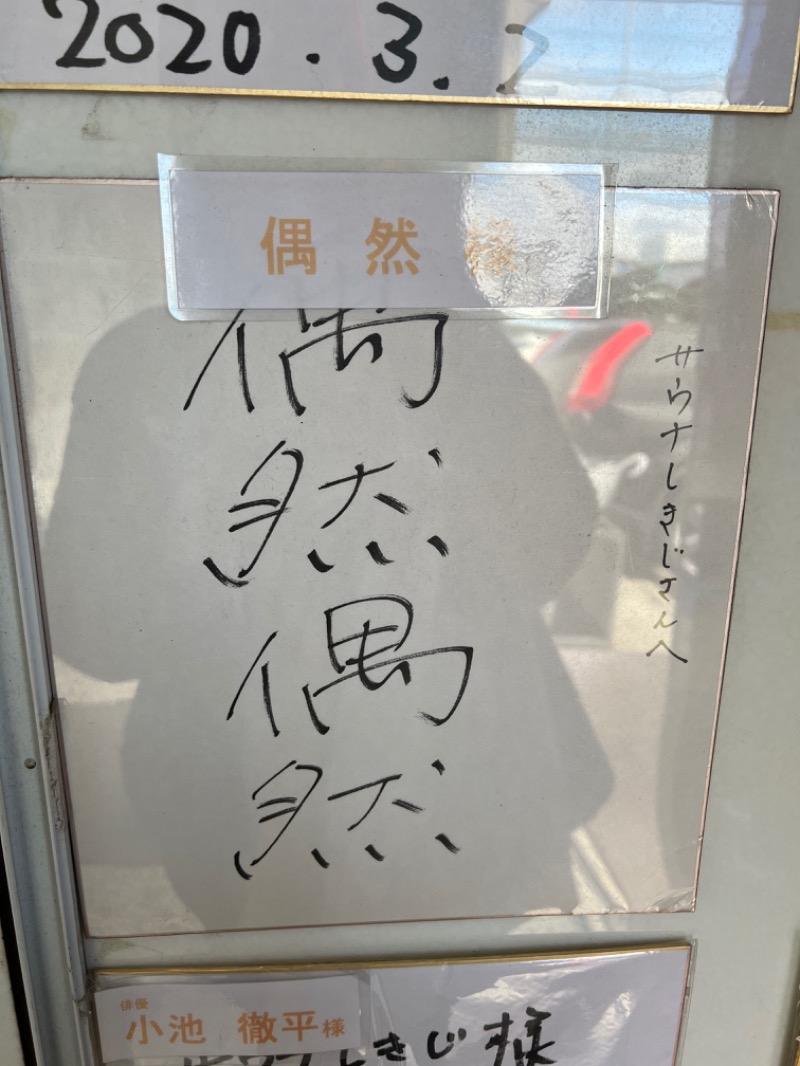 2020.3.
偶然様
サウナしきじさんへ
偶
然
偶
然
俳優
小池 徹平様
サウナしきじ様